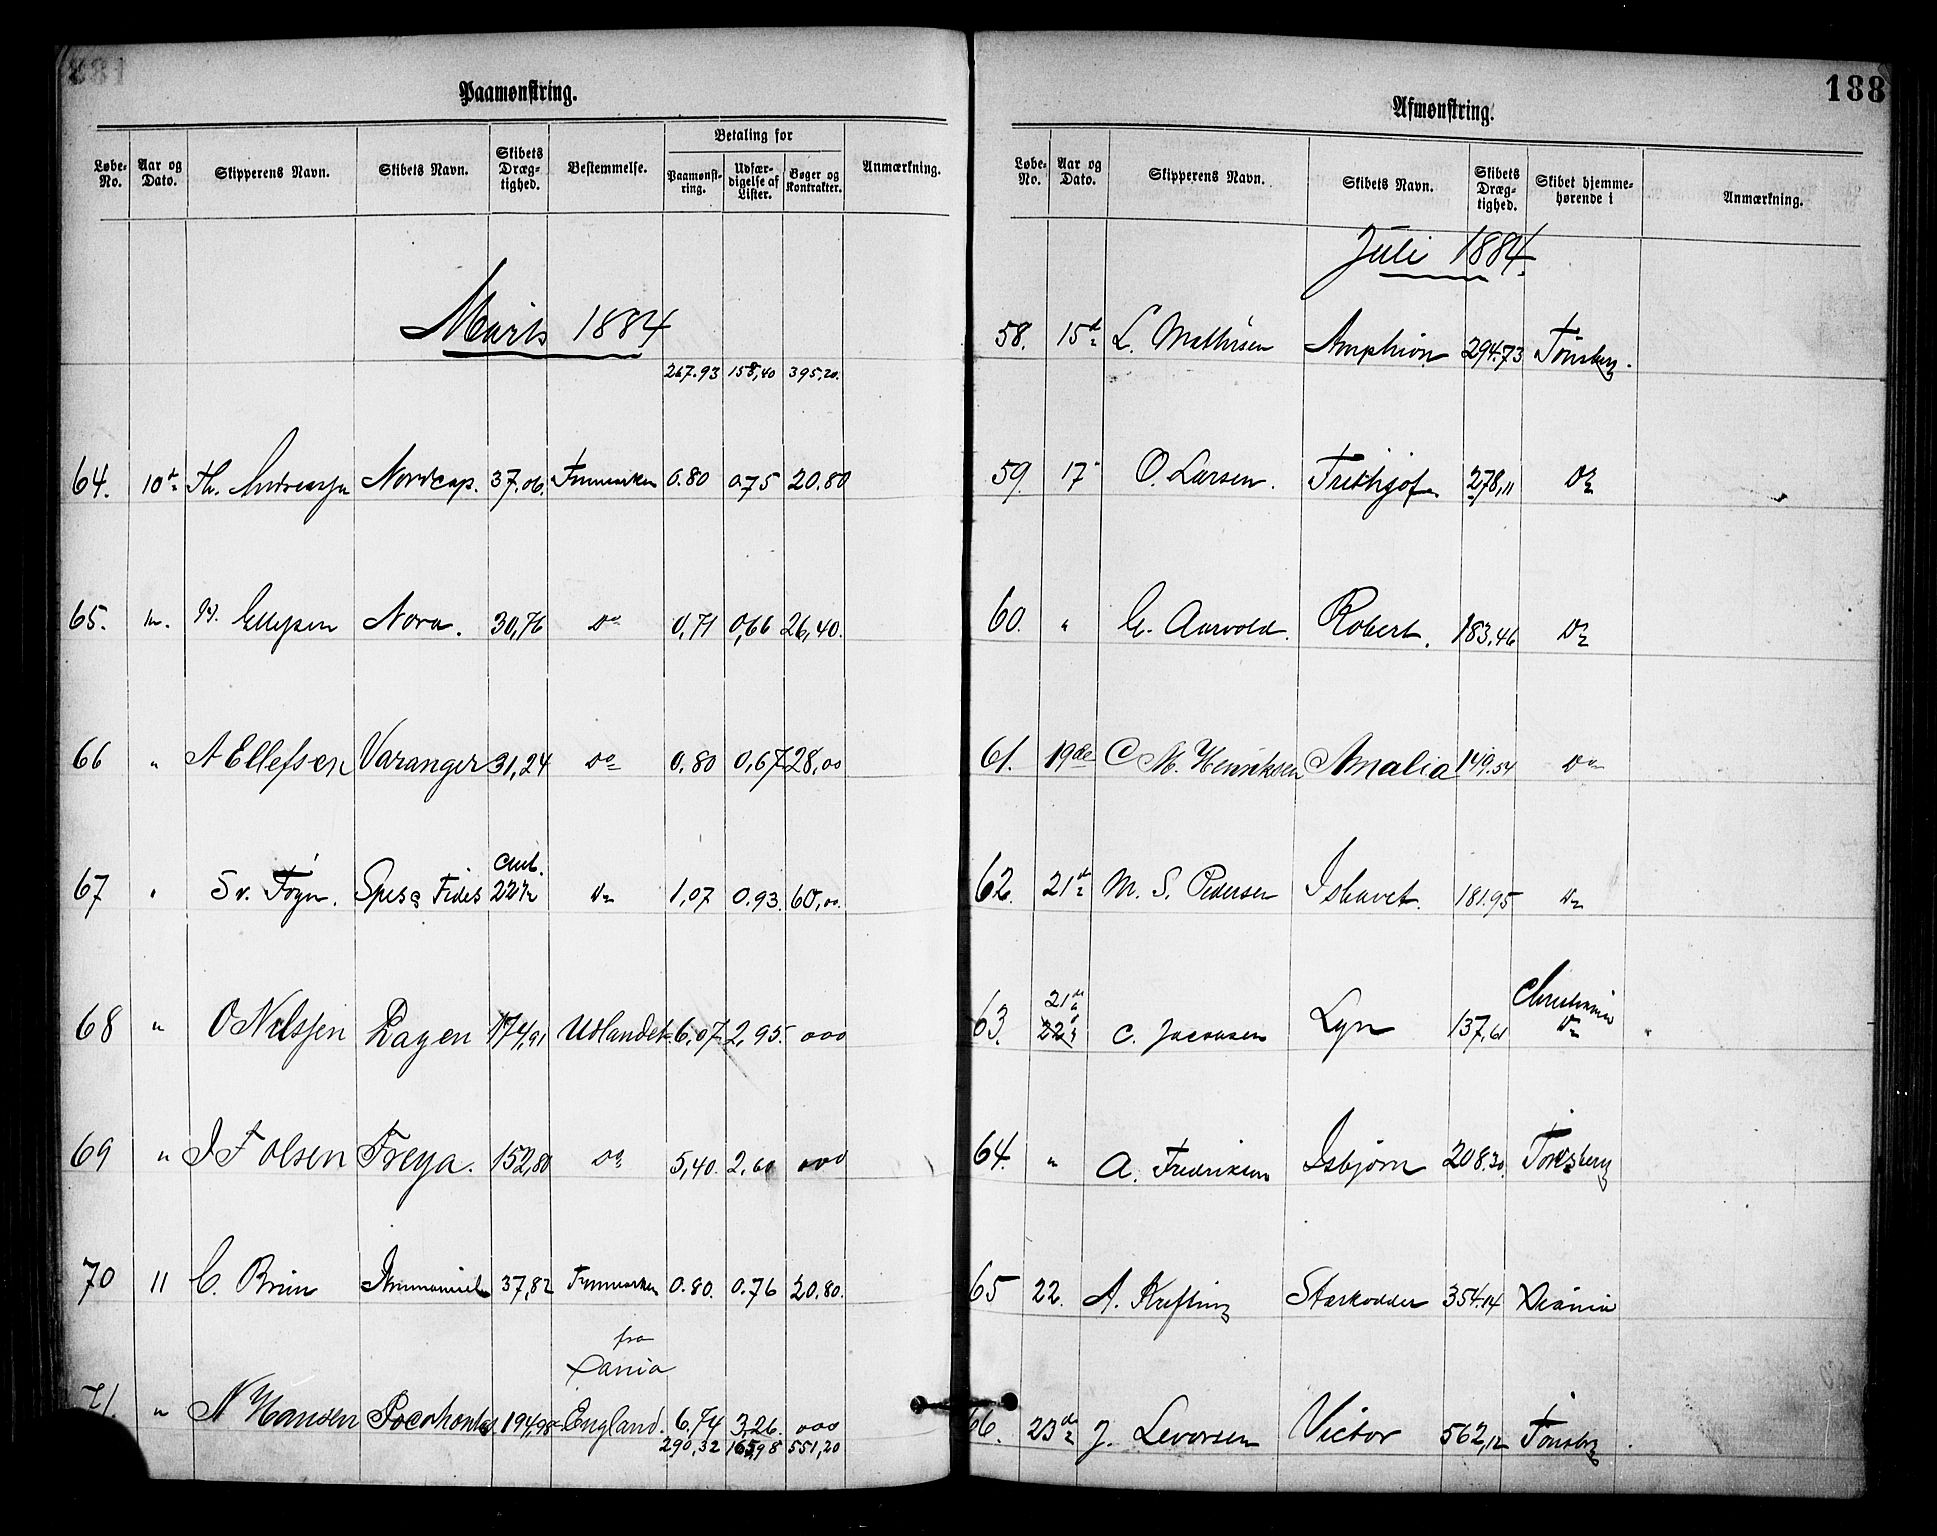 Paamønstring.
Løbe-No. Aar og Dato. Skipperens Navn. Skibets Navn. Skibets Dræg-tighed. Bestemmelse. Betaling for Paamønst-ring. Udfær-digelse af Lister. Bøger og Kontrakter. Anmærkning.
Marts 1884
267.93 158,40 395,20.
64. 10de Th. Andreassen Nordcap. 37.06. Finmarken 0.80 0.75 20.80
65. Ellefsen Nora. 30,76 Do 0,71 0,66 26,40.
66 " A Ellefsen Varanger 31,24 Do 0.80 0,67 28,00
67 " Sv. Føyn. Spes & Fides Do 1,07 0.93. 60,00.
68 " O Nilssen Dagen 174,91 Udlandet 6,07 2,95. 000
69 " I F Olsen Freya. 152,80 Do 5,40. 2,60 000
70 11 C. Bruun Immanuel 37,82 Finmarken 0.80. 0.76 20.80.
fra
Xania
71. " N Hansen Pocahontas 194,98 England. 6,74 3,26. 000
290,32 165,98 551,20
188
Afmønstring.
Løbe-No. Aar og Dato. Skipperens Navn. Skibets Navn. Skibets Dræg-tighed. Skibet hjemme-hørende i Anmærkning.
Juli 1884.
58. 15de L. Mathisen Amphion 294.73 Tønsberg.
59. 17 O. Larsen. Frithjof 278,11 Do
60. " G. Aarvold. Robert. 183,46 Do
61. 19de C M. Henriksen Amalia 149.54 Do
62. 21de M. S. Pedersen Ishavet. 181.95 Do
63. 21de 22 C. Jacobsen Lyn 137,61 Christiania Do
64. " A. Fredriksen Isbjørn 208.30. Tønsberg
65 22. A. Krefting Starkodder 354.14 Xiania
66. 23de J. Levorsen Victor 562,12 Tønsberg.